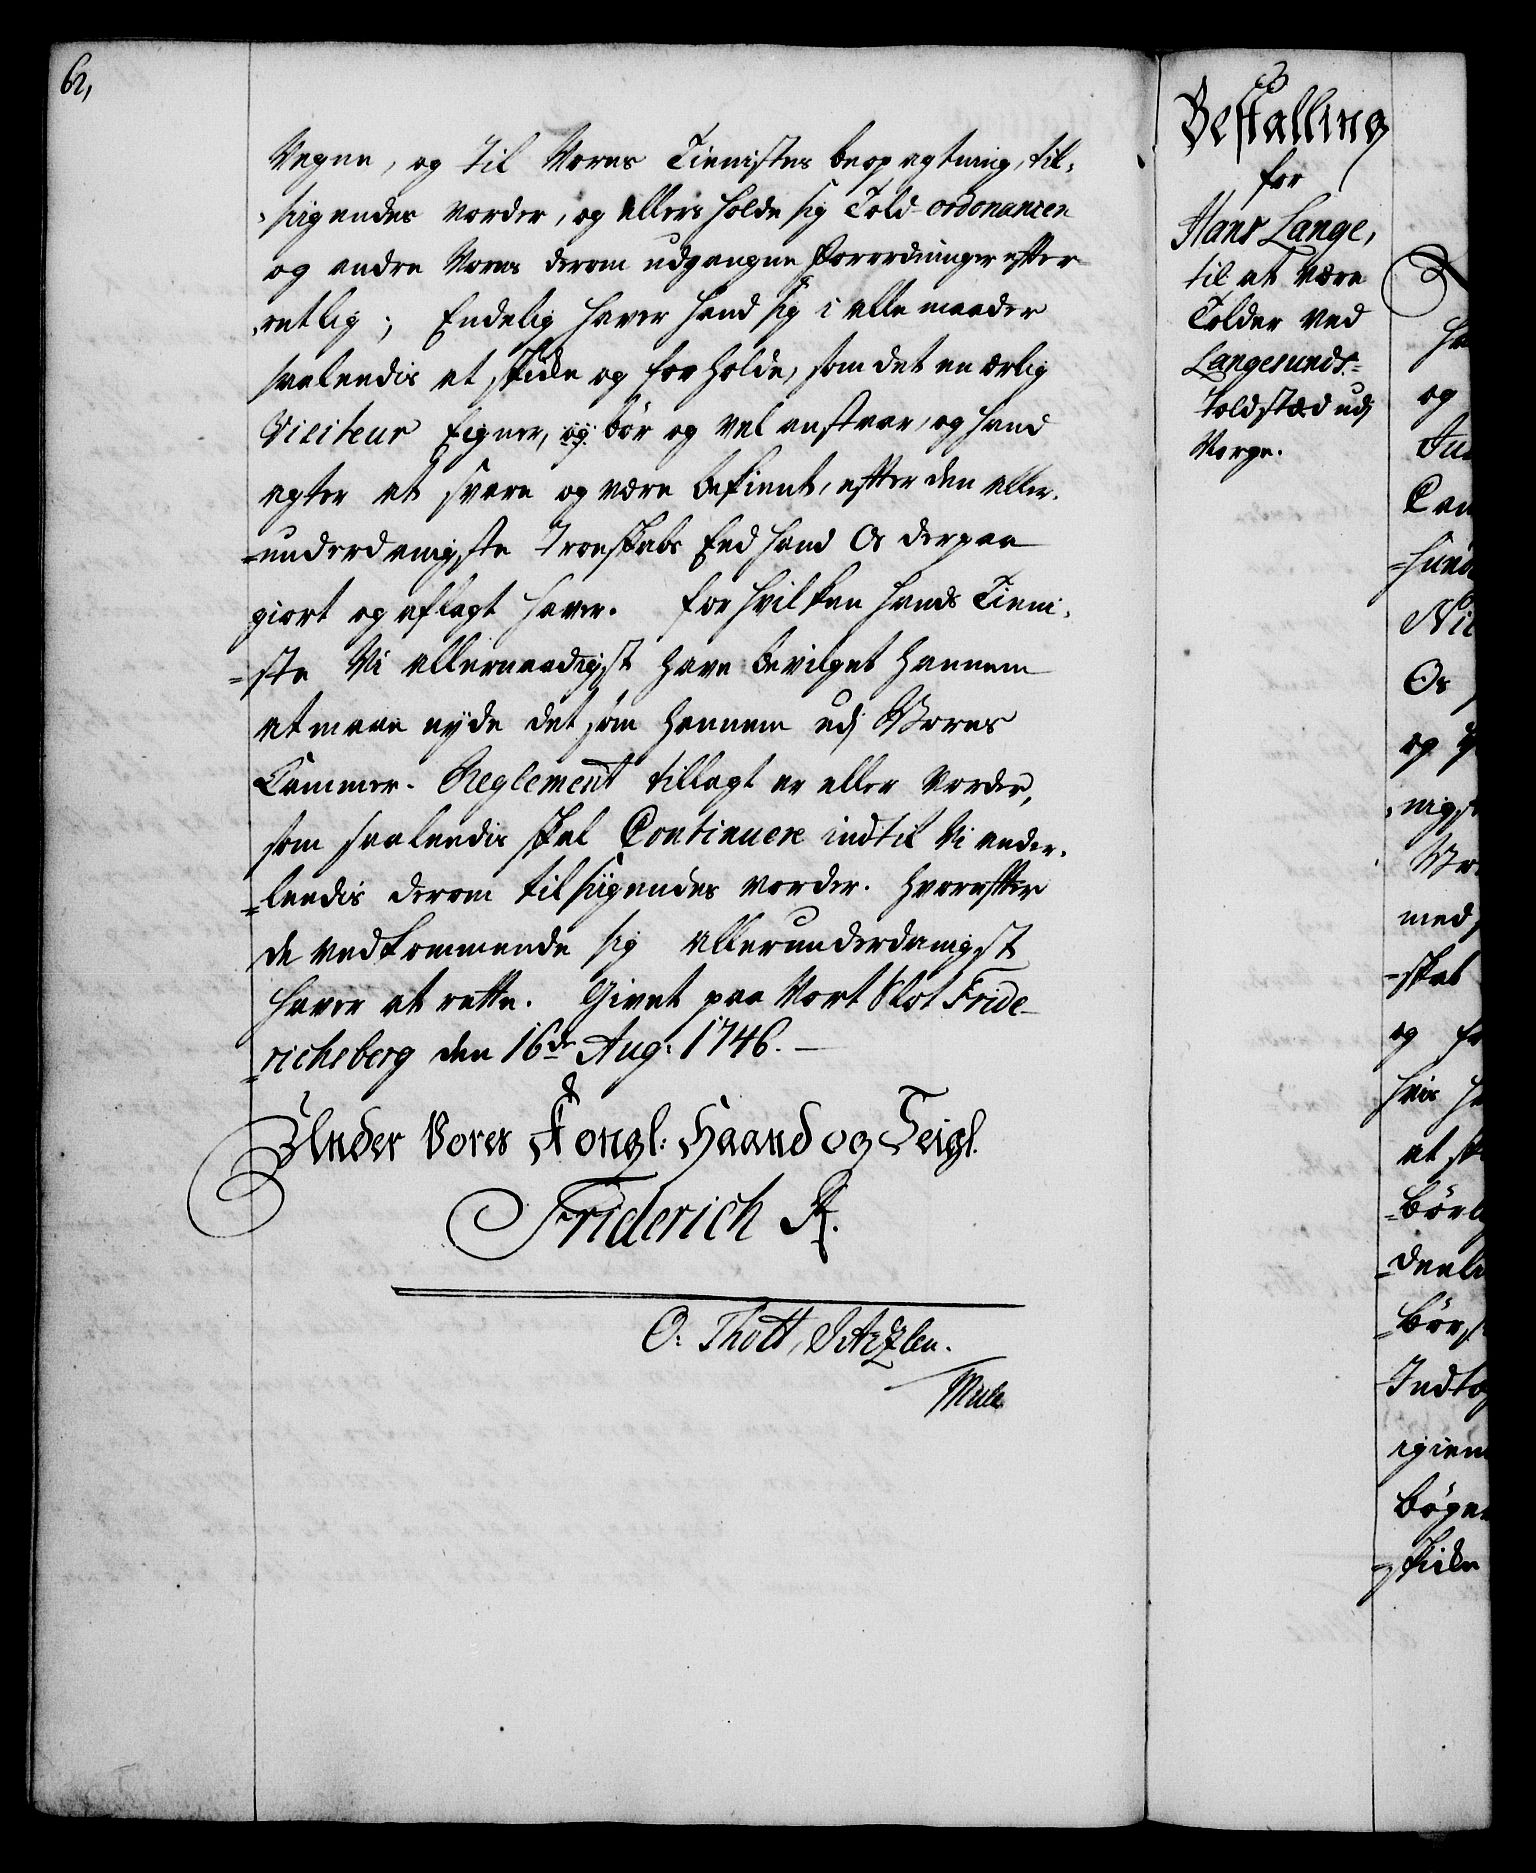 62,
Vegne, og til Vores Tienistes beopagtning, til-
sigendes vorder, og ellers holde sig Told-ordonancen
og andre Vores derom udgangne Forordninger efter-
retlig; Endelig haver hand sig i alle maader
saaledis at skikke og forholde, som det en ærlig
Visiteur Eigner, og bør og vel anstaar, og hand
agter at svare og være bekient, efter den aller-
=underdanigste Troeskabs Eed hand Os derpaa
giort og aflagt haver. For hvilken hands Tieni-
=ste Vi allernaadigst have bevilget hannem
at maae nyde det som hannem udj Vores
Cammer-Reglement tillagt er eller vorder,
som saaledis skal Continuere indtil Vi ander-
=leedis derom tilsigendes vorder. Hvorefter
de vedkommende sig allerunderdanigst
haver at rette. Givet paa Vort Slot Fride-
=richsberg den 16de Aug: 1746.
Under Vores Kongl: Haand og Seigl.
Friderich R.
O: Thott,
Mule
Bestalling
for
Hans Lange,
til at være
Tolder ved
Langesunds-
toldstæd udj
Norge.
og
Os
og
med
=skal
og
hvis
at
=bør
Indtæ
bøger
=skikke